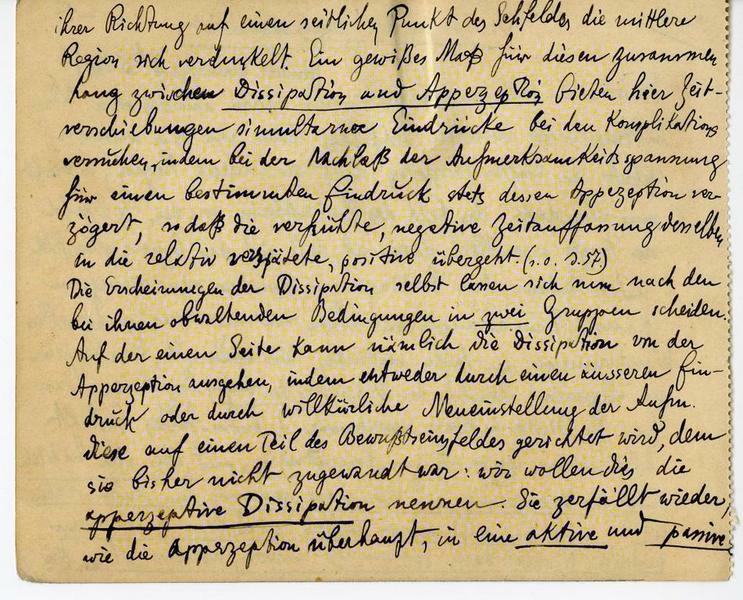 ihrer Richtung auf einen seitlichen Punkt des Sehfeldes die mittlere
Region sich verdunkelt. Ein gewißes Maß für diesen zusammen
hang zwischen Dissipation und Apperzeption bieten hier Zeit-
verschiebungen simultaner Eindrücke bei den Komplikations
versuchen, indem bei der Nachlaß der Aufmerksamkeitsspannung
für einen bestimmten Eindruck stets dessen Apperzeption ver-
zögert, so daß die verfrühte, negative Zeitauffassung desselben
in die relativ verspätete, positive übergeht. (s.o. S.57)
Die Erscheinungen der Dissipation selbst lassen sich nun nach den
bei ihnen obwaltenden Bedingungen in zwei Gruppen scheiden.
Auf der einen Seite kann nämlich die Dissipation von der
Apperzeption ausgehen, indem entweder durch einen äusseren Ein-
druck oder durch willkürliche Neueinstellung der Aufm.
diese auf einen Teil des Bewußtseinsfeldes gerichtet wird, dem
sie bisher nicht zugewandt war: wir wollen dies die
apperzeptive Dissipation nennen. Sie zerfällt wieder,
wie die Apperzeption überhaupt, in eine aktive und passive